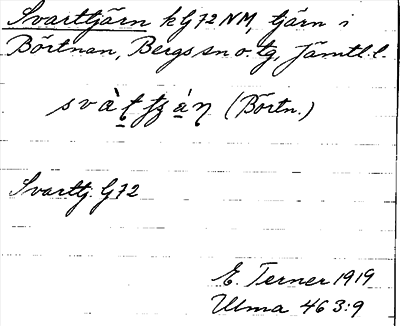 Svarttjärn k G72NM, tjärn i
Börtnan, Bergs sn o. tg, Jämtl. l.
(Börtn.)
Svarttj. G72
E. Terner 1919
Ulma 463:9